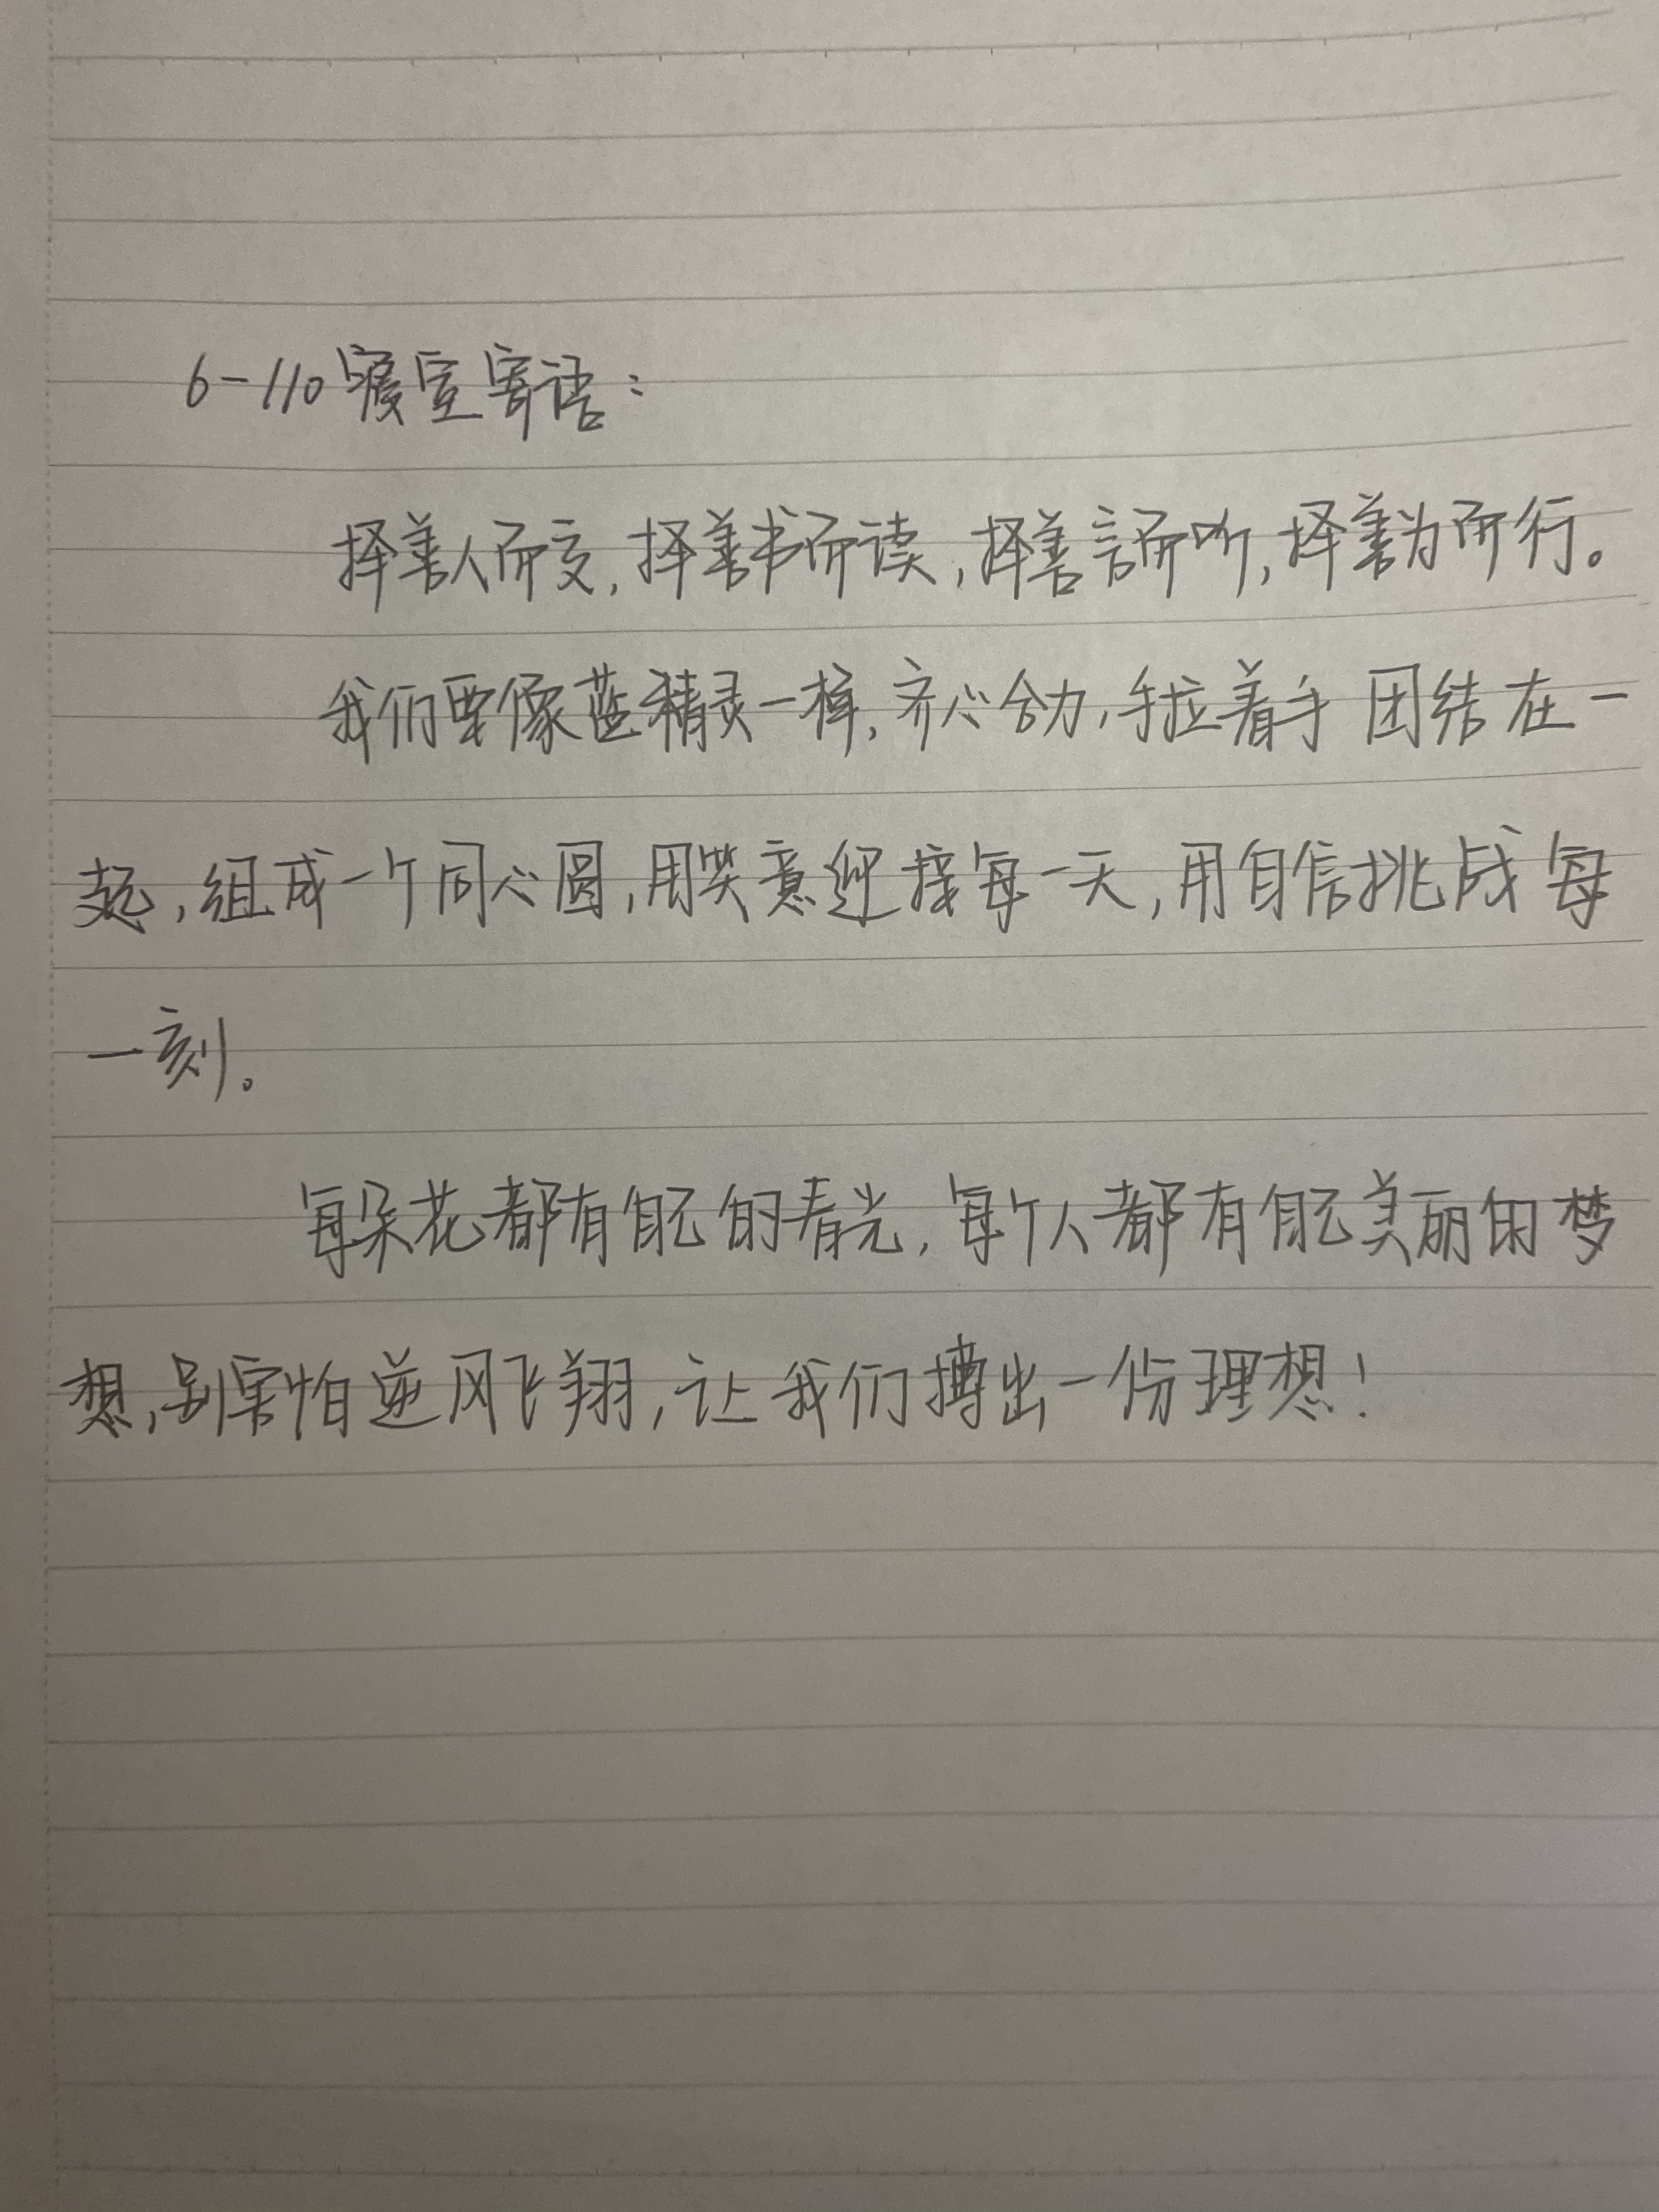 6-110寝室寄语：
择善人而交，择善书而读，择善言而听，择善为而行。
我们要像蓝精灵一样，齐心合力，手拉着手 团结在一
起，组成一个同心圆，用笑意迎接每一天，用自信挑战每
一刻。
每朵花都有自己的春光，每个人都有自己美丽的梦
想，别害怕逆风飞翔，让我们搏出一份理想！